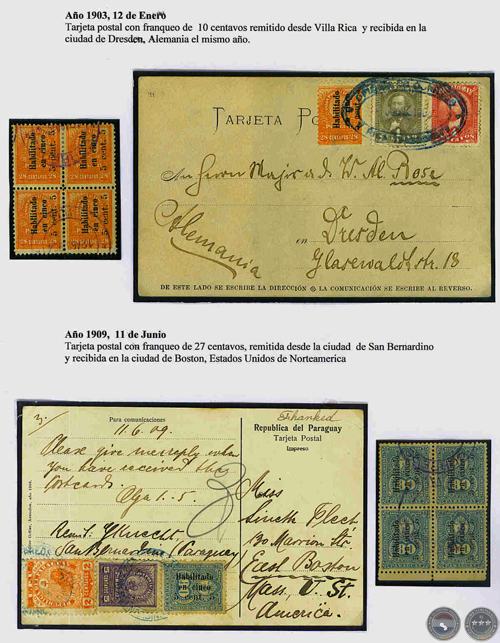 Año 1903, 12 de Enero
Tarjeta postal con franqueo de 10 centavos remitido desde Villa Rica y recibida en la
ciudad de Dresden, Alemania el mismo año.
Habilitado
en cinco
5 cent. 5
Habilitado
en cinco
5 cent. 5
Habilitado
en cinco
5 cent. 5
Habilitado
en cinco
5 cent. 5
Habilitado
TARJETA
An Herrn Major a. d. W. Al. Rose
Dresden
Alemania
Glasewaldtstr. 18
DE ESTE LADO SE ESCRIBE LA DIRECCIÓN LA COMUNICACIÓN SE ESCRIBE AL REVERSO.
Año 1909, 11 de Junio
Tarjeta postal con franqueo de 27 centavos, remitida desde la ciudad de San Bernardino
y recibida en la ciudad de Boston, Estados Unidos de Norteamerica
3.
Para comunicaciones
11.6.09.
Please give me reply when
you have received this
postcards.
Olga
San Bernardino, Paraguay
Habilitado
en cinco
5 cent. 5
República del Paraguay
Tarjeta Postal
Impreso
Miss
130 Marion Str.
East Boston
Mass, U. St.
America.
Habilitado
Habilitado
Habilitado
Habilitado
PORTAL GUARANI